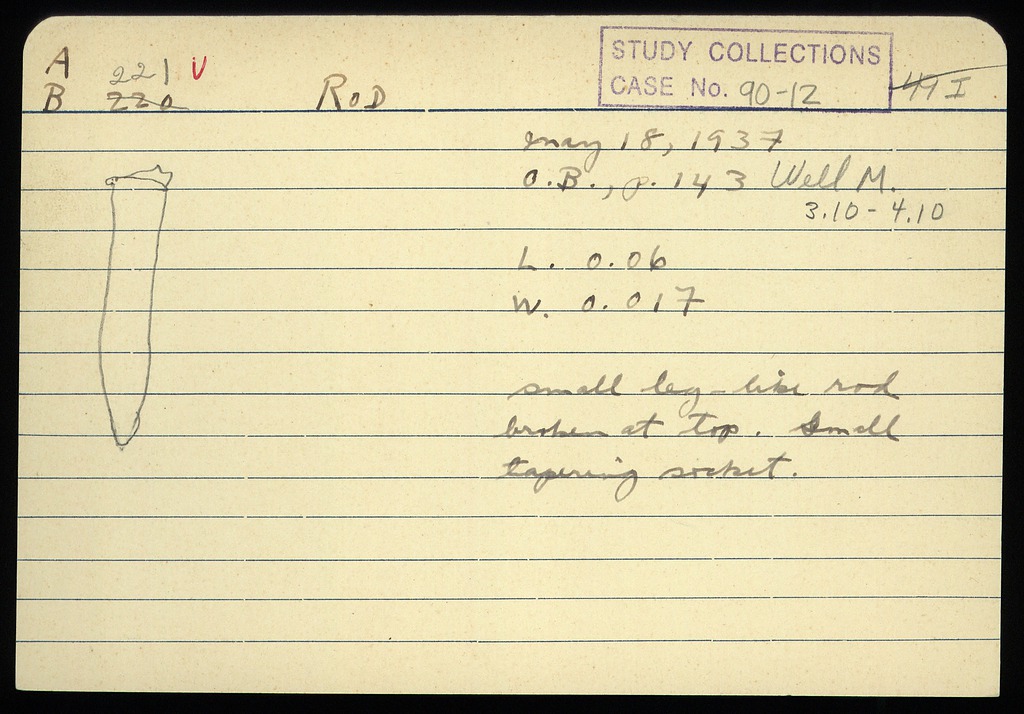 A 221 V
B 220 ROD
STUDY COLLECTIONS
CASE No. 90-12
41 I
May 18, 1937
O.B., p. 143 Well M.
3.10 - 4.10
L. 0.06
W. 0.017
small leg-like rod
broken at top. Small
tapering socket.